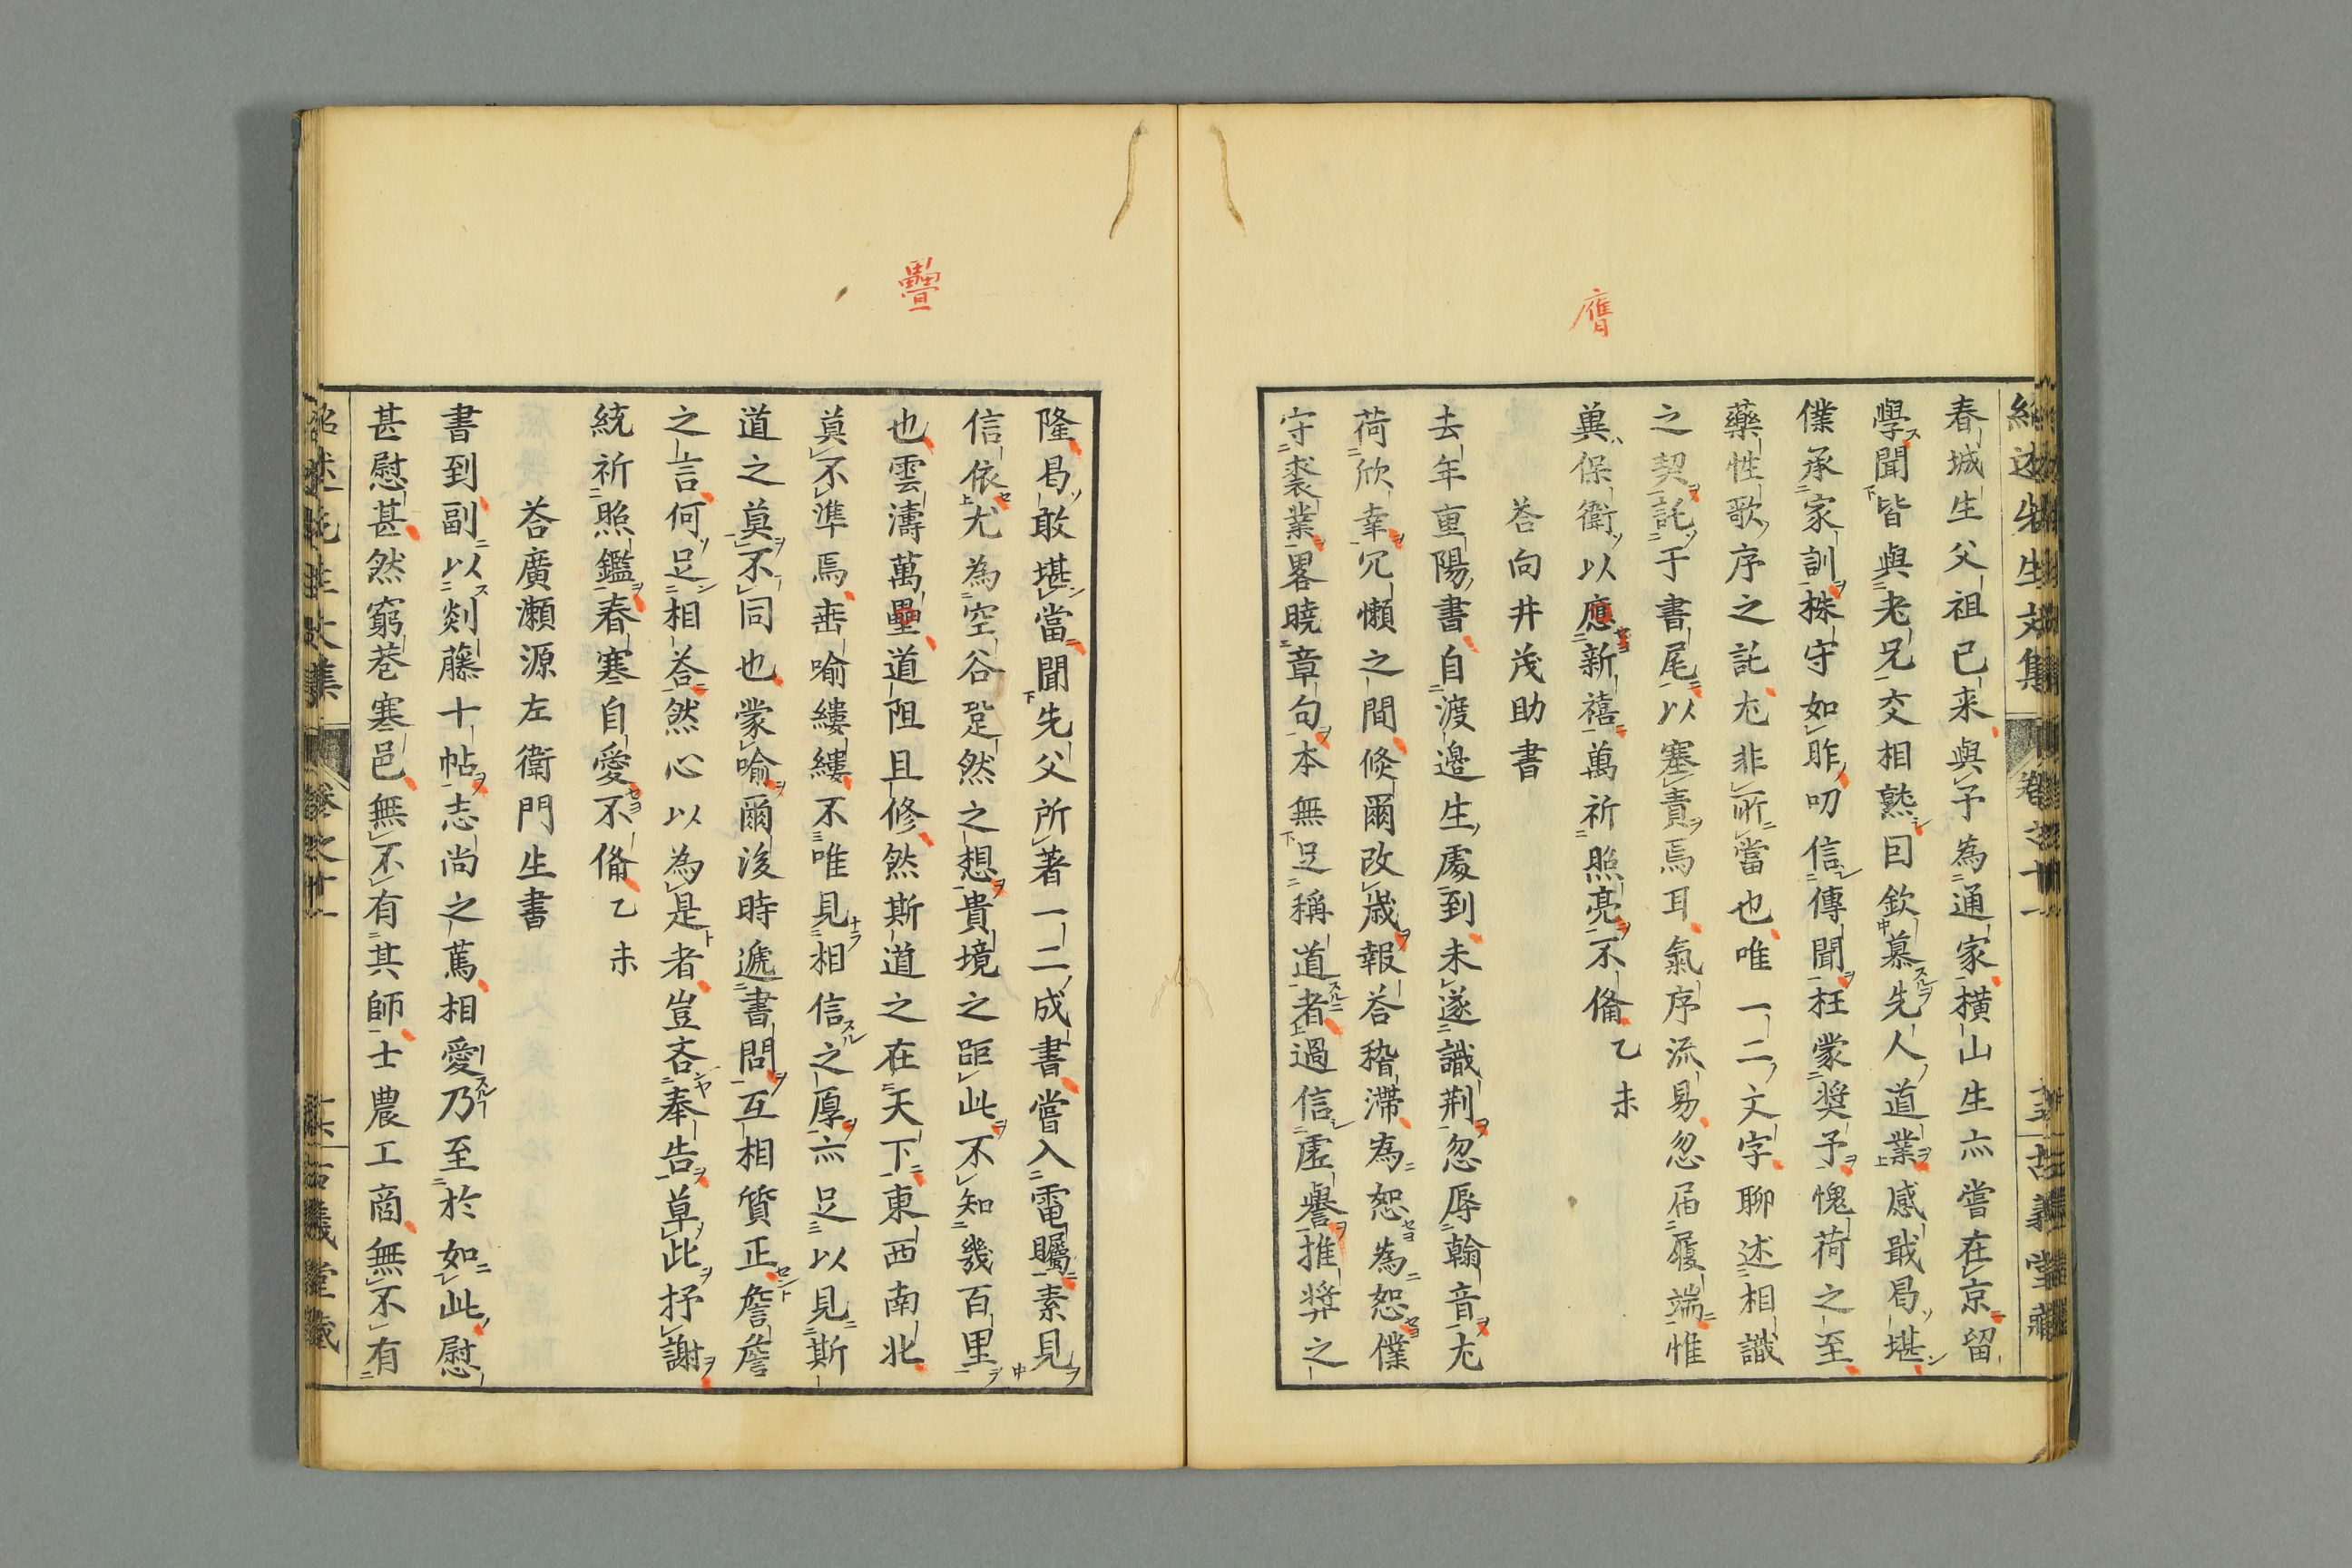 膺
春城生父祖已来與予為通家横山生亦嘗在京留
學聞皆與老兄交相熟因欽慕先人道業感戢曷堪
僕承家訓株守如昨叨信傳聞枉蒙奨予愧荷之至
藥性歌序之託尤非所當也唯一二文字聊述相識
之契託于書尾以塞責焉耳氣序流易忽届履端惟
冀保衛以應新禧萬祈照亮不備乙未
荅向井茂助書
去年重陽書自渡邉生處到未遂識荆忽辱翰音尤
荷欣幸冗懶之間倐爾改歳報荅稽滞為恕為恕僕
守裘業畧曉章句本無足稱道者過信虚譽推奨之
疊
隆曷敢堪當聞先父所著一二成書嘗入電矚素見
信依尤為空谷跫然之想貴境之距此不知幾百里
也雲濤萬壘道阻且修然斯道之在天下東西南北
莫不準焉埀喻縷縷不唯見相信之厚亦足以見斯
道之莫不同也蒙喻爾後時遞書問互相質正詹詹
之言何足相荅然心以為是者豈吝奉告草此抒謝
統祈照鑑春寒自愛不備乙未
荅廣瀬源左衛門生書
書到副以剡藤十帖志尚之蔫相愛乃至於如此慰
甚慰甚然窮巷寒邑無不有其師士農工商無不有